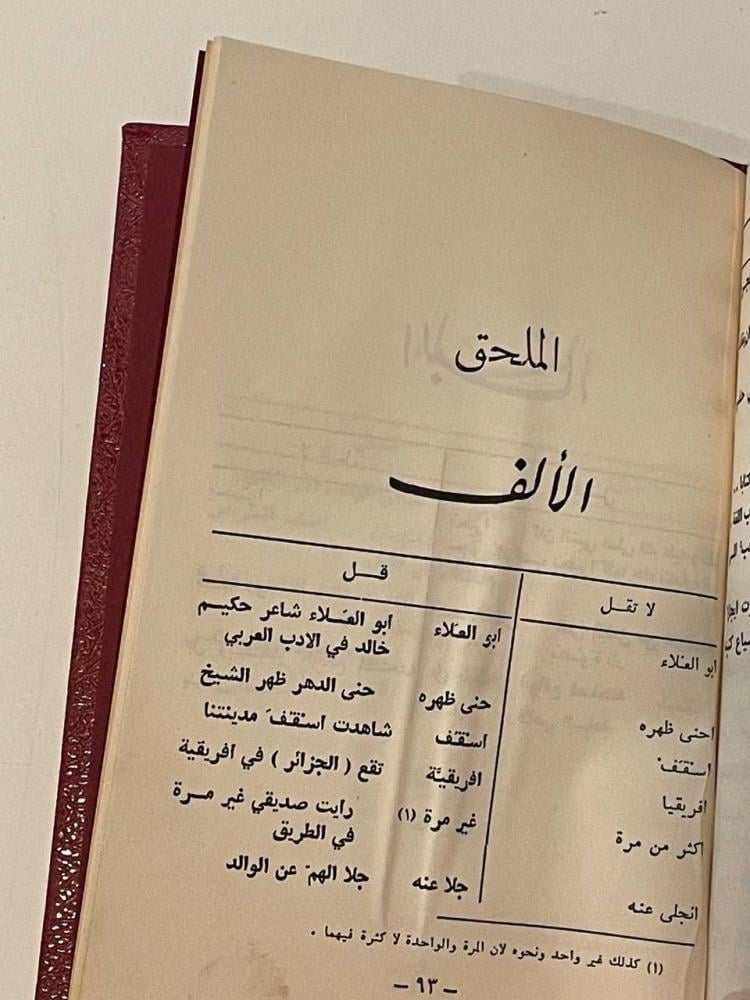 الملحق
الألف
لا تقل قــل
ابو العُلاء ابو العَلاء ابو العَــلاء شاعر حكيــم
خالد في الادب العربي
احنى ظهره حنى ظهره حنى الدهر ظهر الشيخ
اسْقَف اسْقف شاهدت اسقف مدينتنا
افريقيا افريقيَّة تقع ( الجزائر ) في افريقية
اكثر من مرة غير مرة (١) رايت صديقي غير مــرة
في الطريق
انجلى عنه جلا عنه جلا الهمّ عن الوالد
(١) كذلك غير واحد ونحوه لان المرة والواحدة لا كثرة فيهما .
– ٩٣ –